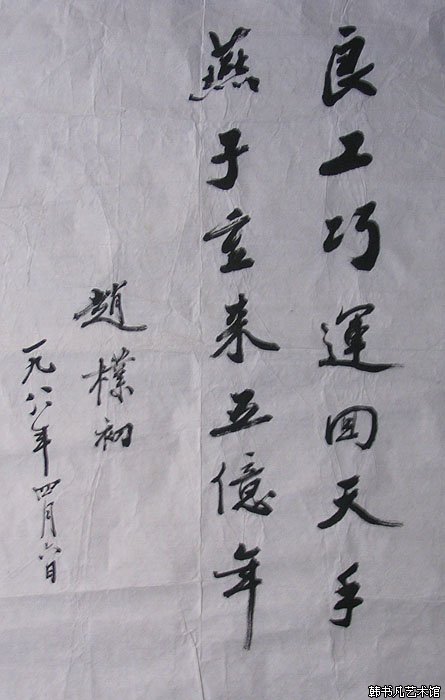 良工巧運回天手
燕子重来五億年
趙樸初
一九八八年四月六日
韩书凡艺术馆